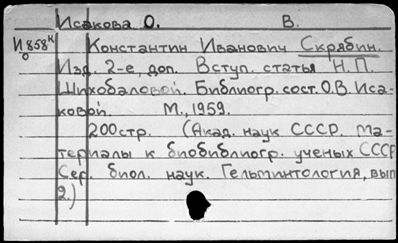 Исакова О. В.
И858к Константин Иванович Скрябин.
о
Изд. 2-е, доп. Вступ. статья Н.П.
Шихобаловой. Библиогр. сост. О.В. Иса-
ковой. М., 1959.
200стр. (Акад. наук СССР. Ма-
териалы к биобиблиогр. ученых СССР
Сер. биол. наук. Гельминтология, вып
2.)